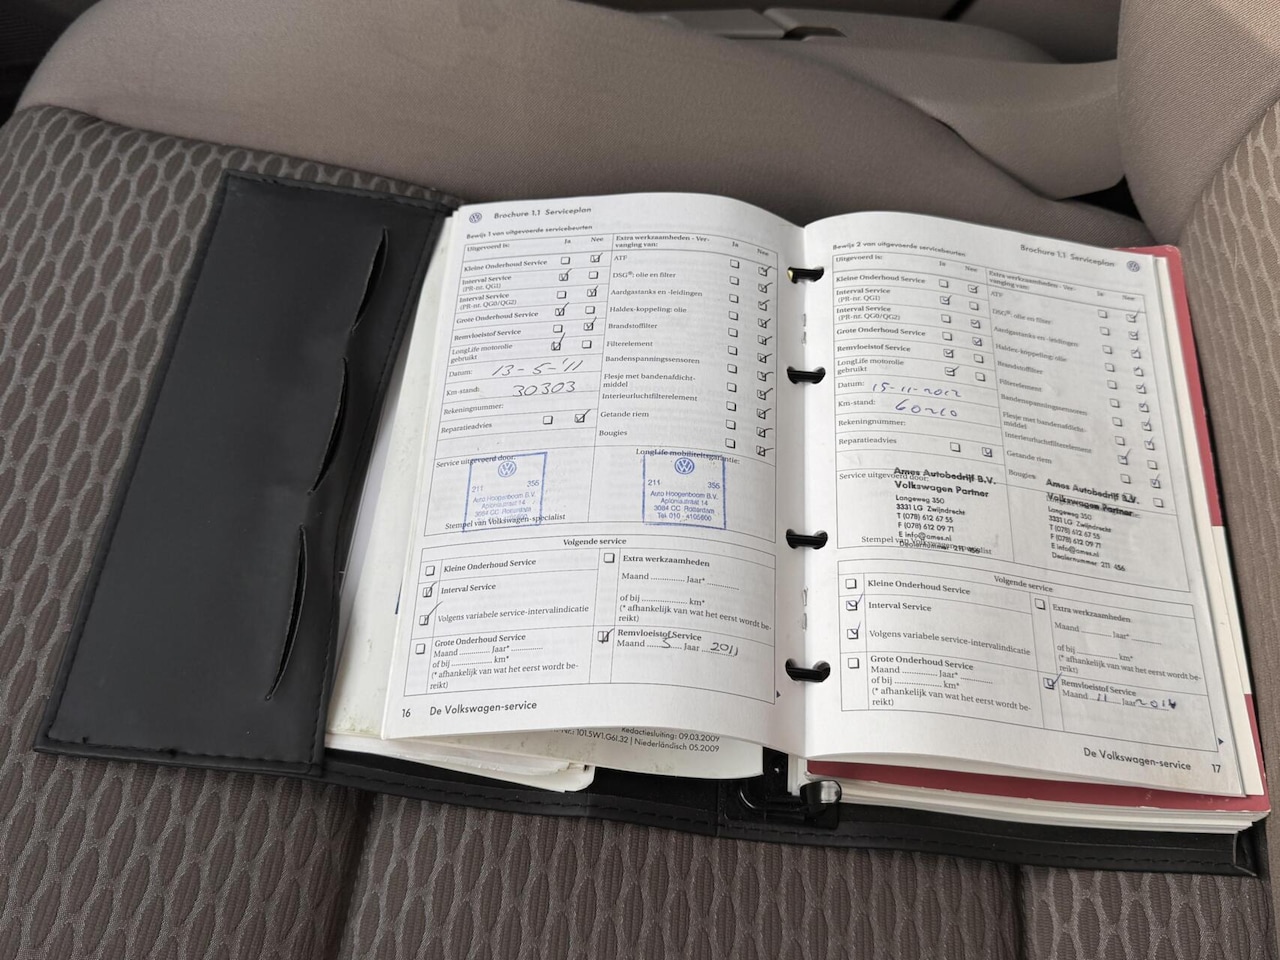 Brochure 1.1 Serviceplan
Bewijs 1 van uitgevoerde servicebeurten
Uitgevoerd is: Ja Nee
Kleine Onderhoud Service
Interval Service
(PR-nr. QG1)
Interval Service
(PR-nr. QG0/QG2)
Grote Onderhoud Service
Remvloeistof Service
LongLife motorolie
gebruikt
Datum: 13-5-'11
Km-stand: 30303
Rekeningnummer:
Reparatieadvies
Extra werkzaamheden - Ver-
vanging van: Ja Nee
ATF
DSG®: olie en filter
Aardgastanks en -leidingen
Haldex-koppeling: olie
Brandstoffilter
Filterelement
Bandenspanningssensoren
Flesje met bandenafdicht-
middel
Interieurluchtfilterelement
Getande riem
Bougies
Service uitgevoerd door:
211 356
Auto Hoogenboom B.V.
Aploniastraat 14
3084 CC Rotterdam
Stempel van Volkswagen-specialist
LongLife mobiliteitsgarantie:
211 356
Auto Hoogenboom B.V.
Aploniastraat 14
3084 CC Rotterdam
Tel. 010 - 4105800
Volgende service
Kleine Onderhoud Service
Interval Service
Volgens variabele service-intervalindicatie
Grote Onderhoud Service
Maand ............ Jaar* ............
of bij ............ km*
(* afhankelijk van wat het eerst wordt be-
reikt)
Extra werkzaamheden
Maand ............ Jaar* ............
of bij ............ km*
(* afhankelijk van wat het eerst wordt be-
reikt)
Remvloeistof Service
Maand 5 Jaar 2011
16 De Volkswagen-service
Redactiesluiting: 09.03.2009
101.5W1.G6I.32 | Niederländisch 05.2009
Brochure 1.1 Serviceplan
Bewijs 2 van uitgevoerde servicebeurten
Uitgevoerd is: Ja Nee
Kleine Onderhoud Service
Interval Service
(PR-nr. QG1)
Interval Service
(PR-nr. QG0/QG2)
Grote Onderhoud Service
Remvloeistof Service
LongLife motorolie
gebruikt
Datum: 15-11-2012
Km-stand: 60210
Rekeningnummer:
Reparatieadvies
Extra werkzaamheden - Ver-
vanging van: Ja Nee
ATF
DSG®: olie en filter
Aardgastanks en -leidingen
Haldex-koppeling: olie
Brandstoffilter
Filterelement
Bandenspanningssensoren
Flesje met bandenafdicht-
middel
Interieurluchtfilterelement
Getande riem
Bougies
Service uitgevoerd door:
Ames Autobedrijf B.V.
Volkswagen Partner
Langeweg 350
3331 LG Zwijndrecht
T (078) 612 67 55
F (078) 612 09 71
E info@ames.nl
Dealernummer 211 456
Stempel van Volkswagen-specialist
Ames Autobedrijf B.V.
Volkswagen Partner
Langeweg 350
3331 LG Zwijndrecht
T (078) 612 67 55
F (078) 612 09 71
E info@ames.nl
Dealernummer 211 456
Volgende service
Kleine Onderhoud Service
Interval Service
Volgens variabele service-intervalindicatie
Grote Onderhoud Service
Maand ............ Jaar* ............
of bij ............ km*
(* afhankelijk van wat het eerst wordt be-
reikt)
Extra werkzaamheden
Maand ............ Jaar* ............
of bij ............ km*
(* afhankelijk van wat het eerst wordt be-
reikt)
Remvloeistof Service
Maand 11 Jaar 2014
De Volkswagen-service 17